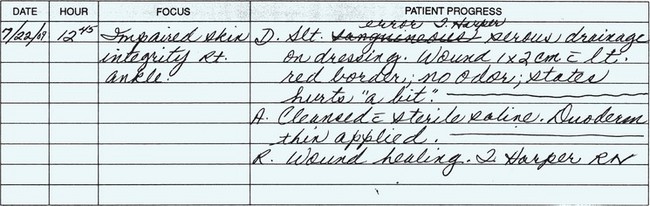 DATE HOUR FOCUS PATIENT PROGRESS
error T. Harper
7/22/09 12 45 Impaired skin D. Slt. sanguineous serous drainage
integrity Rt. on dressing. Wound 1x2 cm c̄ lt.
ankle. red border; no odor; states
hurts "a bit".
A. Cleansed c̄ sterile saline. Duoderm
thin applied.
R. Wound healing. T. Harper RN